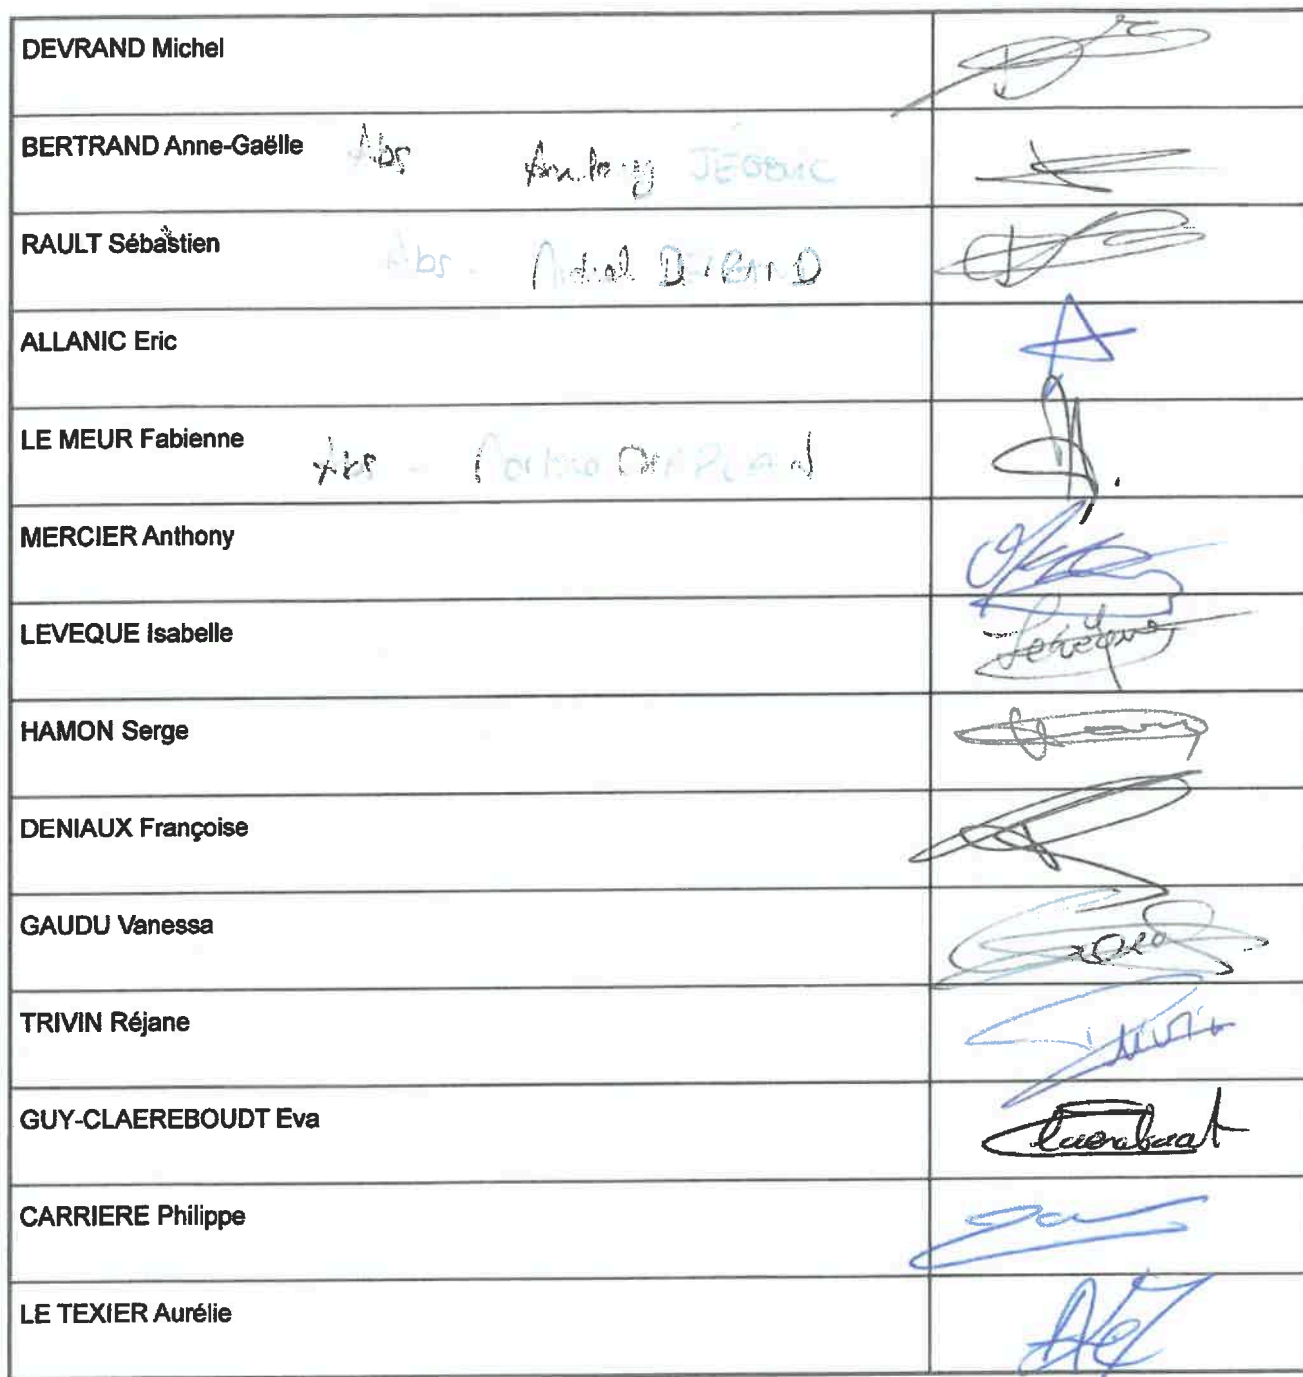 DEVRAND Michel
BERTRAND Anne-Gaëlle Abs JÉGOUIC
RAULT Sébastien Abs -
ALLANIC Eric
LE MEUR Fabienne Abs -
MERCIER Anthony
LEVEQUE Isabelle
HAMON Serge
DENIAUX Françoise
GAUDU Vanessa
TRIVIN Réjane
GUY-CLAEREBOUDT Eva
CARRIERE Philippe
LE TEXIER Aurélie